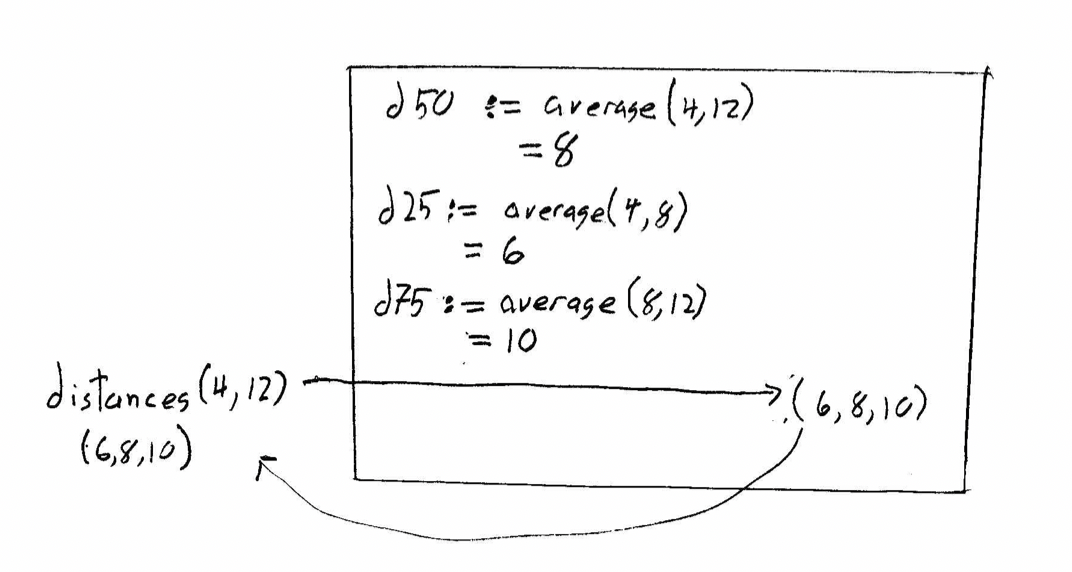 d50 := average(4,12)
= 8
d25 := average(4,8)
= 6
d75 := average(8,12)
= 10
distances(4,12)
(6,8,10)
(6,8,10)